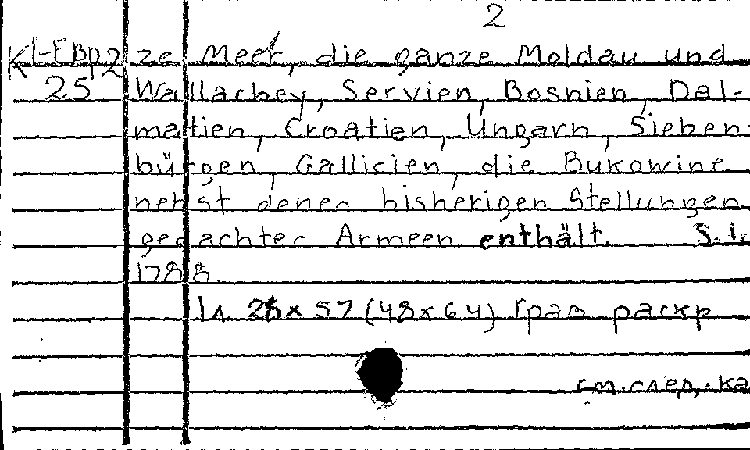 2
Kl-FBp2 ze Meer, die ganze Moldau und
25 Wallachey, Servien, Bosnien, Dal-
matien, Croatien, Ungarn, Sieben-
bürgen, Gallicien, die Bukowine
nebst denen bisherigen Stellungen
gedachter Armeen enthält. S.l.
1788.
1л. 28x57 (48x64) Грав раскр
см. след. ка